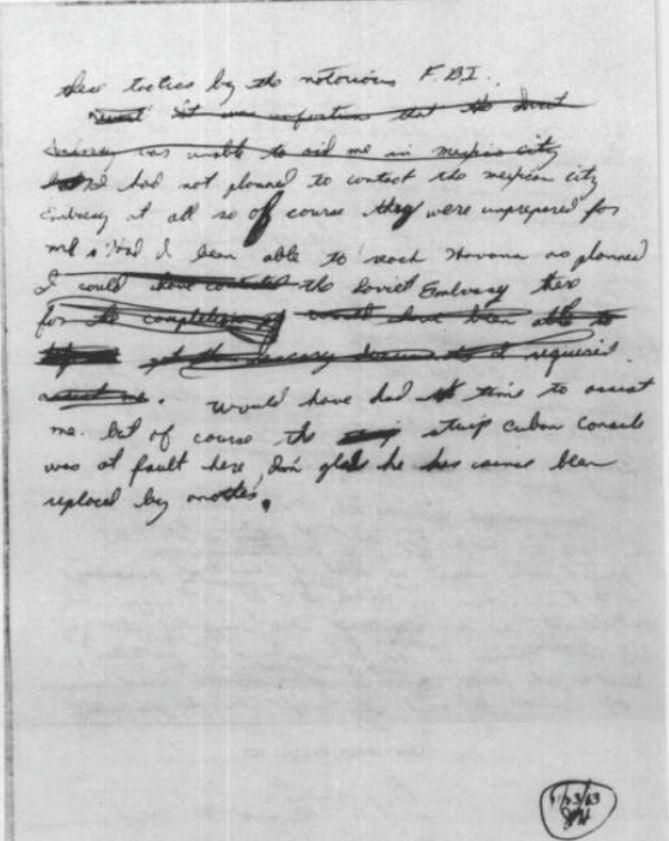 thes tactics by the notorious F.B.I.
It was unfortuna that the Soviet
Embassy was unable to aid me in mexico city
I had not planned to contact the mexican city
Embassy at all so of course they were unprepared for
me. Had I been able to reach Havana as planned
I could have contacted the Soviet Embassy there
for the completion of would have been able to
get the necessary documents I required
assist me. would have had time to assist
me. but of course the stuip cuban consule
was at fault here Im glad he has since been
replaced by another.